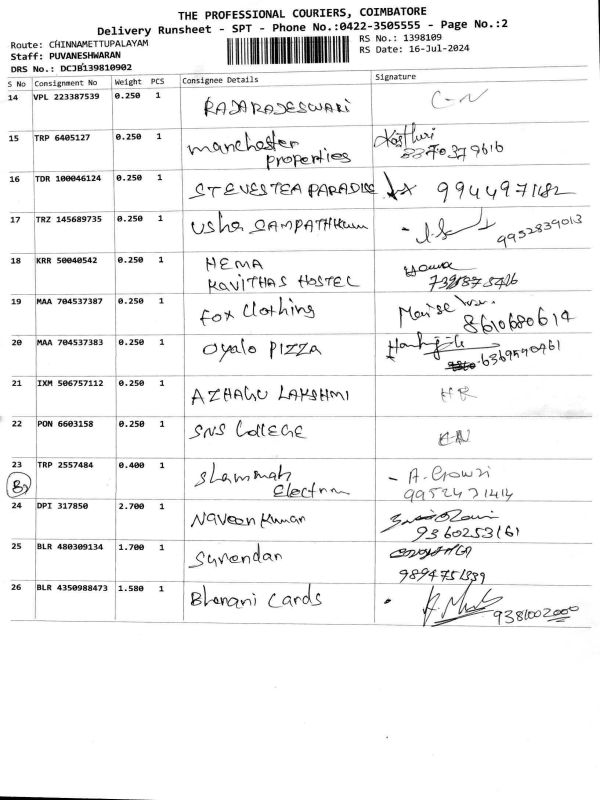 THE PROFESSIONAL COURIERS, COIMBATORE
Delivery Runsheet - SPT - Phone No.:0422-3505555 - Page No.:2
Route: CHINNAMETTUPALAYAM
RS No.: 1398109
Staff: PUVANESHWARAN
RS Date: 16-Jul-2024
DRS No.: DCJB139810902
S No Consignment No Weight PCS Consignee Details Signature
14 VPL 223387539 0.250 1 RAJARAJESWARI C-N
15 TRP 6405127 0.250 1 manchester properties Kasthuri
16 TDR 100046124 0.250 1 STEVESTEA PARADISE 9944971482
17 TRZ 145689735 0.250 1 Usha SAMPATHKum 9952839013
18 KRR 50040542 0.250 1 HEMA KAVITHAS HOSTEL
19 MAA 704537387 0.250 1 Fox Clothing 8610680614
20 MAA 704537383 0.250 1 Oyalo PIZZA 6369590461
21 IXM 506757112 0.250 1 AZHAGU LAKSHMI
22 PON 6603158 0.250 1 SNS COLLEGE
23 TRP 2557484 0.400 1 Shammah Electron - A. Gowri 9952471414
24 DPI 317850 2.700 1 Naveen Kumar 9360253161
25 BLR 480309134 1.700 1 Surendan 9894751339
26 BLR 4350988473 1.580 1 Bhavani Cards 9381002000